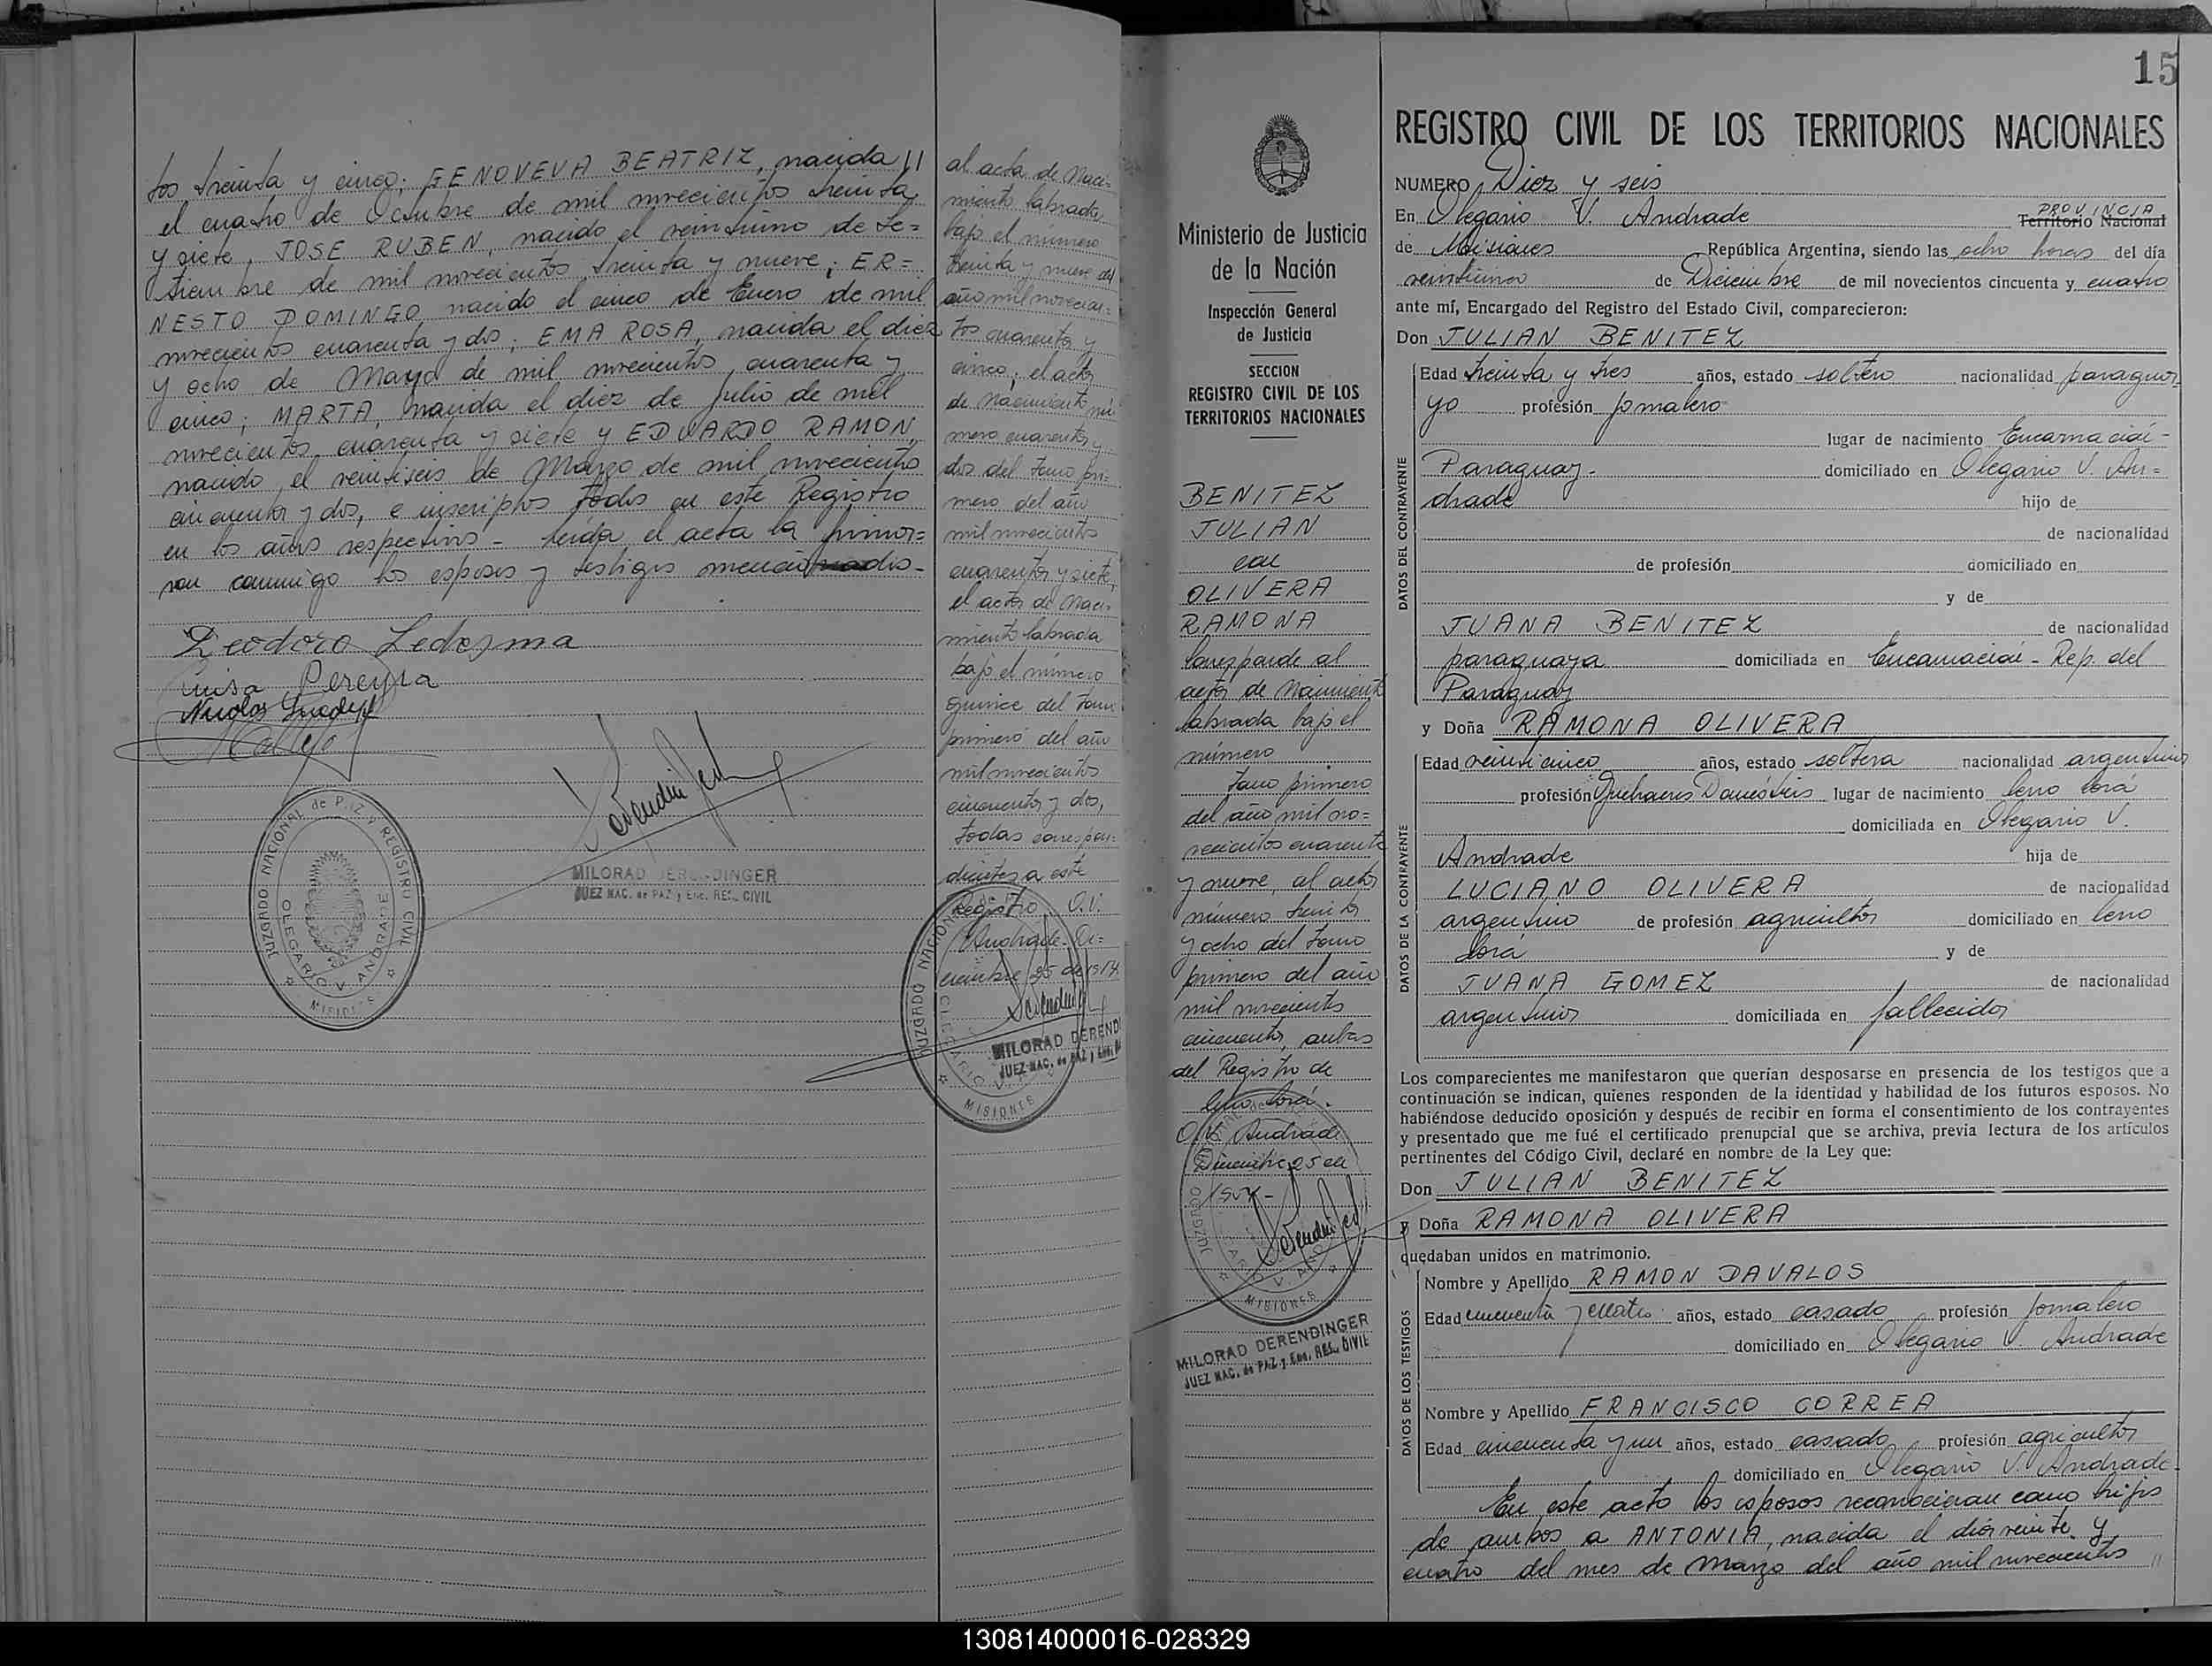 tos treinta y cinco; GENOVEVA BEATRIZ, nacida //
el cuatro de Octubre de mil novecientos treinta
y siete, JOSE RUBEN, nacido el veintiuno de Se=
tiembre de mil novecientos treinta y nueve; ER=
NESTO DOMINGO, nacido el cinco de Enero de mil
novecientos cuarenta y dos; EMA ROSA, nacida el diez
y ocho de Mayo de mil novecientos cuarenta y
cinco; MARTA, nacida el diez de Julio de mil
novecientos cuarenta y siete y EDUARDO RAMON,
nacido el veintiseis de Marzo de mil novecientos
cincuenta y dos, e inscriptos todos en este Registro
en los años respectivos - leída el acta la firma=
ron conmigo los esposos y testigos mencionados-
Teodoro Ledezma
Luisa Pereyra
Nicolas
JUZGADO NACIONAL de PAZ y REGISTRO CIVIL
OLEGARIO V. ANDRADE
MISIONES
MILORAD DERENDINGER
JUEZ NAC. de PAZ y Enc. REG. CIVIL
al acta de Naci=
miento labrada
bajo el número
treinta y nueve del
año mil novecien=
tos cuarenta y
cinco; el acta
de Nacimiento nú
mero cuarenta y
dos del tomo pri=
mero del año
mil novecientos
cuarenta y siete,
el acta de Naci-
miento labrada
bajo el número
quince del tomo
primero del año
mil novecientos
cincuenta y dos,
todas correspon=
dientes a este
Registro O.V.
Andrade- Di=
ciembre 25 de 1954.
JUZGADO NACIONAL
OLEGARIO V.
MISIONES
MILORAD DEREND
JUEZ NAC. de PAZ y Enc.
15
Ministerio de Justicia
de la Nación
Inspección General
de Justicia
SECCION
REGISTRO CIVIL DE LOS
TERRITORIOS NACIONALES
BENITEZ
JULIAN
con
OLIVERA
RAMONA
Corresponde al
acta de Nacimiento
labrada bajo el
número
tomo primero
del año mil no=
vecientos cuarenta
y nueve, al acta
número treinta
y ocho del tomo
primero del año
mil novecientos
cincuenta, ambas
del Registro de
Cerro Corá.
O.V. Andrade
Diciembre 25 de
JUZGADO
MISIONES
MILORAD DERENDINGER
JUEZ NAC. de PAZ y Enc. REG. CIVIL
REGISTRO CIVIL DE LOS TERRITORIOS NACIONALES
NUMERO Diez y seis
En Olegario V. Andrade PROVINCIA Territorio Nacional
de Misiones República Argentina, siendo las ocho horas del día
veintiuno de Diciembre de mil novecientos cincuenta y cuatro
ante mí, Encargado del Registro del Estado Civil, comparecieron:
Don JULIAN BENITEZ
DATOS DEL CONTRAYENTE
Edad treinta y tres años, estado soltero nacionalidad paragua
yo profesión jornalero
lugar de nacimiento Encarnación-
Paraguay- domiciliado en Olegario V. An=
drade hijo de
de nacionalidad
de profesión domiciliado en
y de
JUANA BENITEZ de nacionalidad
paraguaya domiciliada en Encarnación - Rep. del
Paraguay
y Doña RAMONA OLIVERA
DATOS DE LA CONTRAYENTE
Edad veinticinco años, estado soltera nacionalidad argentina
profesión Quehaceres Domésticos lugar de nacimiento Cerro Corá
domiciliada en Olegario V.
Andrade hija de
LUCIANO OLIVERA de nacionalidad
argentino de profesión agricultor domiciliado en Cerro
Corá y de
JUANA GOMEZ de nacionalidad
argentina domiciliada en fallecida
Los comparecientes me manifestaron que querían desposarse en presencia de los testigos que a
continuación se indican, quienes responden de la identidad y habilidad de los futuros esposos. No
habiéndose deducido oposición y después de recibir en forma el consentimiento de los contrayentes
y presentado que me fué el certificado prenupcial que se archiva, previa lectura de los artículos
pertinentes del Código Civil, declaré en nombre de la Ley que:
Don JULIAN BENITEZ
y Doña RAMONA OLIVERA
quedaban unidos en matrimonio.
DATOS DE LOS TESTIGOS
Nombre y Apellido RAMON DAVALOS
Edad cincuenta y cuatro años, estado casado profesión jornalero
domiciliado en Olegario V. Andrade
Nombre y Apellido FRANCISCO CORREA
Edad cincuenta y un años, estado casado profesión agricultor
domiciliado en Olegario V. Andrade-
En este acto los esposos reconocieron como hijos
de ambos a ANTONIA, nacida el día veinte y
cuatro del mes de Marzo del año mil novecientos //
130814000016-028329